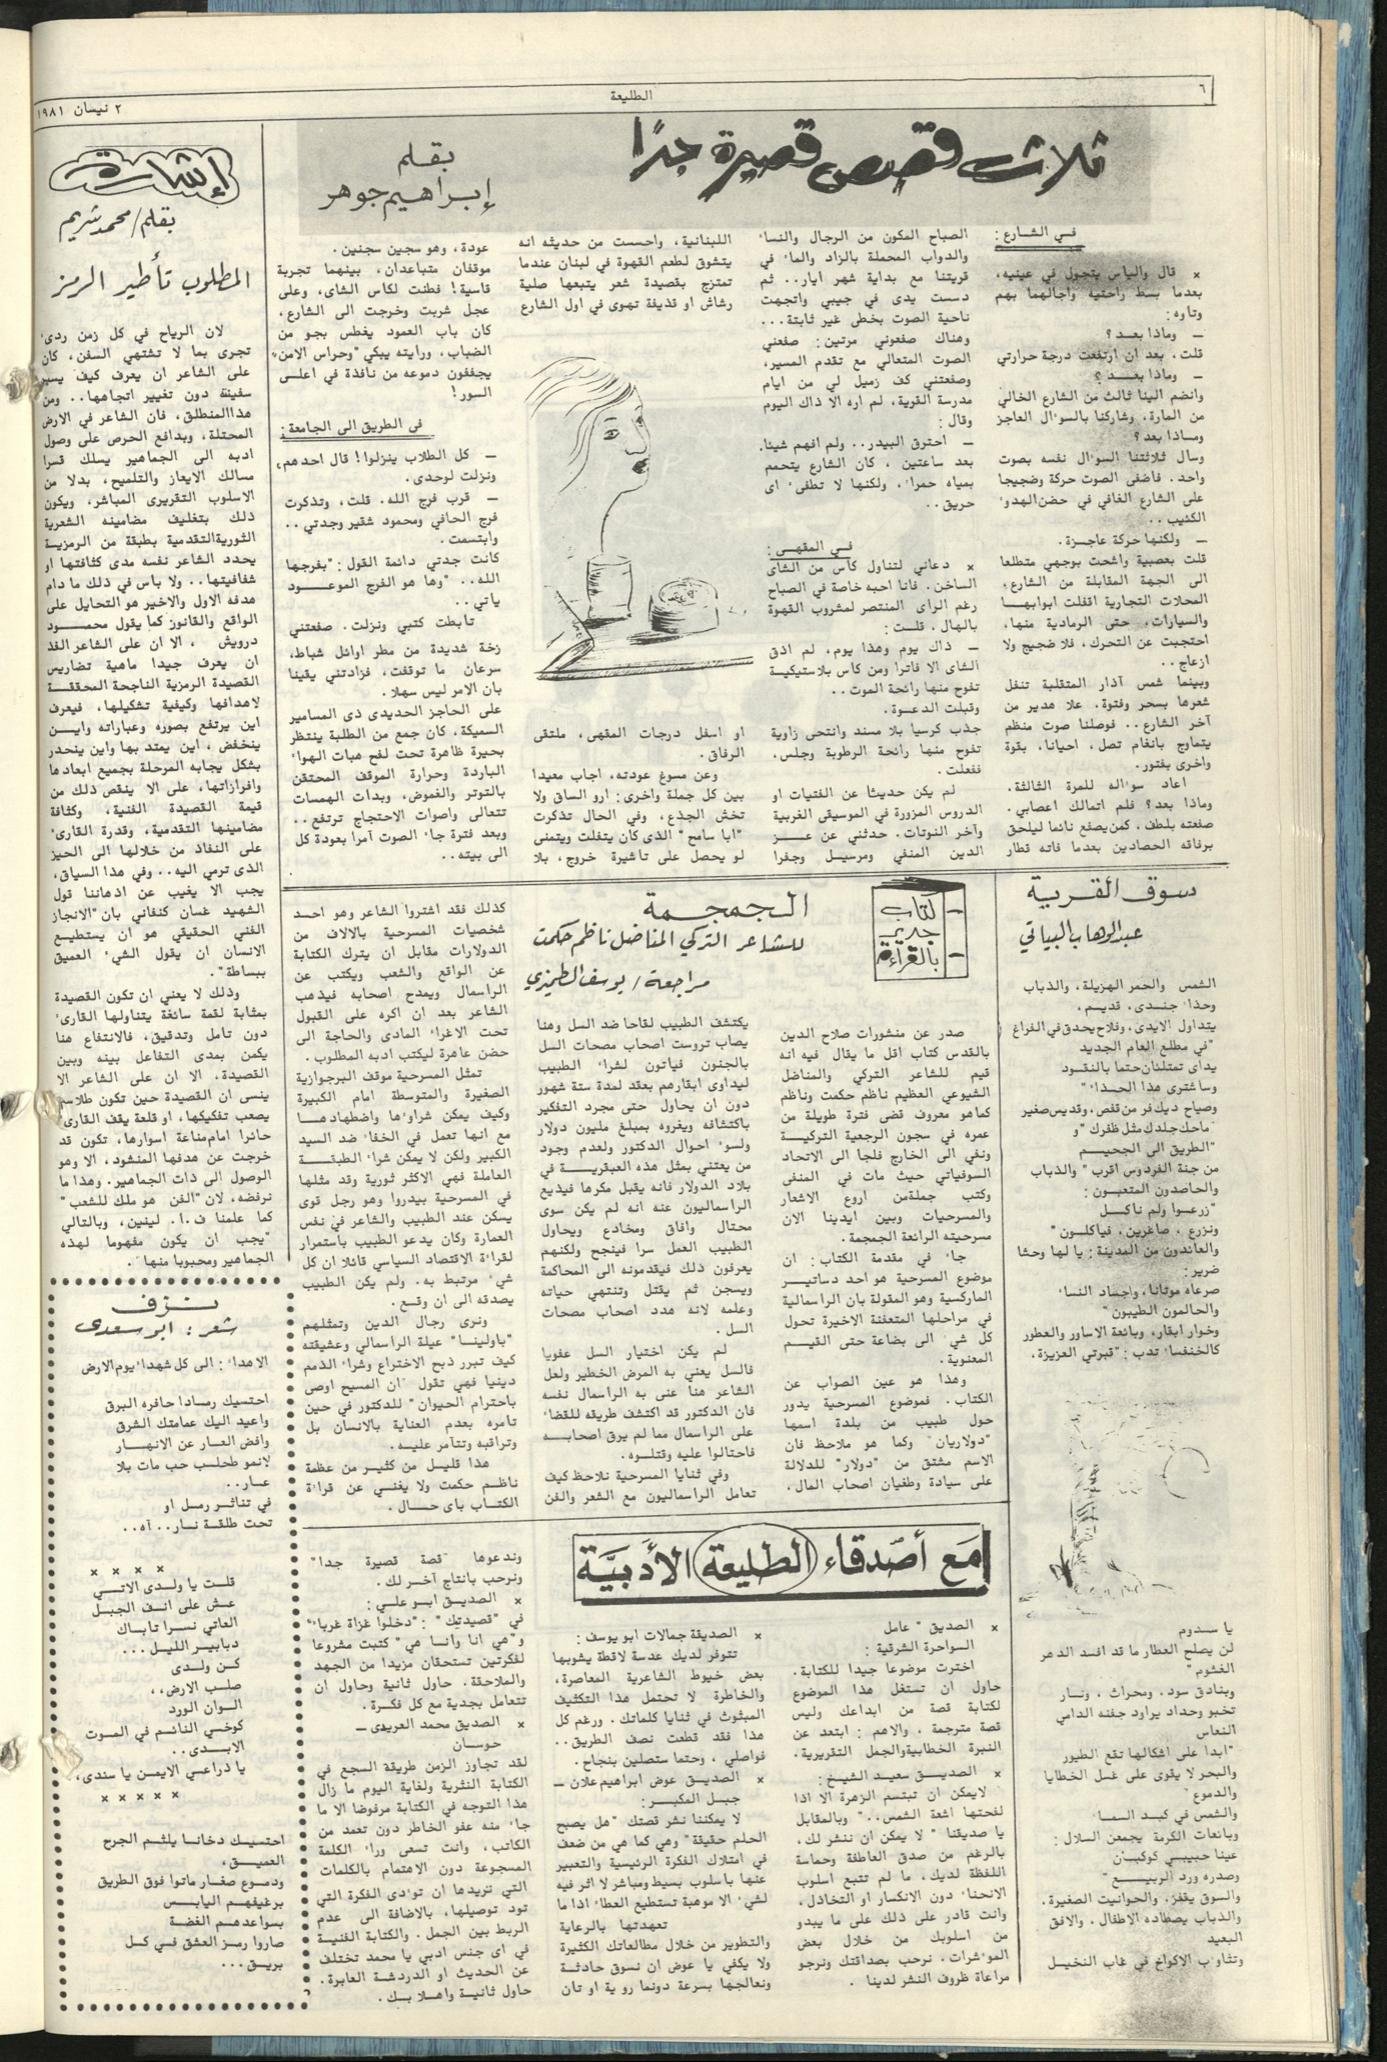 ٦
الطليعة
٢ نيسان ١٩٨١
ثلاث قصص قصيرة جدًا
بقلم
إبراهيم جوهر
في الشارع :
× قال والياس يتجول في عينيه،
بعدما بسط راحتيه واجالهما بهم
وتاوه :
– وماذا بعد ؟
قلت، بعد ان ارتفعت درجة حرارتي
– وماذا بعد ؟
وانضم الينا ثالث من الشارع الخالي
من المارة، وشاركنا بالسوءال العاجز
وماذا بعد ؟
وسال ثلاثتنا السوءال نفسه بصوت
واحد. فاضفى الصوت حركة وضجيجا
على الشارع الغافي في حضن الهدوء
الكئيب ..
– ولكنها حركة عاجزة.
قلت بعصبية واشحت بوجهي متطلعا
الى الجهة المقابلة من الشارع،
المحلات التجارية اقفلت ابوابها
والسيارات، حتى الرمادية منها،
احتجبت عن التحرك، فلا ضجيج ولا
ازعاج ..
وبينما شمس آذار المتقلبة تنفل
شعرها بسحر وفتوة، علا هدير من
آخر الشارع .. فوصلنا صوت منظم
يتماوج بانغام تصل، احيانا، بقوة
واخرى بفتور.
اعاد سوءاله للمرة الثالثة.
وماذا بعد؟ فلم اتمالك اعصابي.
صفعته بلطف، كمن يصفع نائما ليلحق
برفاقه الحصادين بعدما فاته قطار
الصباح المكون من الرجال والنساء
والدواب المحملة بالزاد والماء في
قريتنا مع بداية شهر ايار .. ثم
دسست يدى في جيبي واتجهت
ناحية الصوت بخطى غير ثابتة ...
وهناك صفعوني مرتين : صفعني
الصوت المتعالي مع تقدم المسير،
وصفعتني كف زميل لي من ايام
مدرسة القرية، لم اره الا ذاك اليوم
وقال :
– احترق البيدر .. ولم افهم شيئا.
بعد ساعتين، كان الشارع يتحمم
بمياه حمراء، ولكنها لا تطفىء اى
حريق ..
في المقهى :
× دعاني لتناول كاس من الشاى
الساخن. فانا احبه خاصة في الصباح
رغم الراى المنتصر لمشروب القهوة
بالهال. قلت :
– ذاك يوم وهذا يوم، لم اذق
الشاى الا فاترا ومن كاس بلاستيكية
تفوح منها رائحة الموت ..
وقبلت الدعوة.
جذب كرسيا بلا مسند وانتحى زاوية
تفوح منها رائحة الرطوبة وجلس.
ففعلت.
لم يكن حديثا عن الفتيات او
الدروس المزورة في الموسيقى الغربية
وآخر النوتات. حدثني عن عــز
الدين المنفي ومرسيل وجفرا
اللبنانية، واحسست من حديثه انه
يتشوق لطعم القهوة في لبنان عندما
تمتزج بقصيدة شعر يتبعها صلية
رشاش او قذيفة تهوى في اول الشارع
او اسفل درجات المقهى، ملتقى
الرفاق.
وعن مسوغ عودته، اجاب معيدا
بين كل جملة واخرى : ارو الساق ولا
تخش الجذع، وفي الحال تذكرت
"ابا سامح" الذى كان يتفلت ويتمنى
لو يحصل على تاشيرة خروج، بلا
عودة، وهو سجين سجنين.
موقفان متباعدان، بينهما تجربة
قاسية! فطنت لكاس الشاى، وعلى
عجل شربت وخرجت الى الشارع،
كان باب العمود يغطس بجو من
الضباب، ورايته يبكي "وحراس الامن"
يجففون دموعه من نافذة في اعلى
السور!
في الطريق الى الجامعة :
– كل الطلاب ينزلوا! قال احدهم،
ونزلت لوحدى.
– قرب فرج الله. قلت، وتذكرت
فرج الحافي ومحمود شقير وجدتي ..
وابتسمت.
كانت جدتي دائمة القول : "بفرجها
الله .. "وها هو الفرج الموعــود
ياتي ..
تابطت كتبي ونزلت. صفعتني
زخة شديدة من مطر اوائل شباط،
سرعان ما توقفت، فزادتني يقينا
بان الامر ليس سهلا.
على الحاجز الحديدى ذى المسامير
السميكة، كان جمع من الطلبة ينتظر
بحيرة ظاهرة تحت لفح هبات الهواء
الباردة وحرارة الموقف المحتقن
بالتوتر والغموض، وبدات الهمسات
تتعالى واصوات الاحتجاج ترتفع ..
وبعد فترة جاء الصوت آمرا بعودة كل
الى بيته ..
إشارة
بقلم/ محمد شريم
المطلوب تأطير الرمز
لان الرياح في كل زمن ردىء
تجرى بما لا تشتهي السفن، كان
على الشاعر ان يعرف كيف يسير
سفينته دون تغيير اتجاهها .. ومن
هذا المنطلق، فان الشاعر في الارض
المحتلة، وبدافع الحرص على وصول
ادبه الى الجماهير يسلك قسرا
مسالك الايعاز والتلميح، بدلا من
الاسلوب التقريرى المباشر، ويكون
ذلك بتغليف مضامينه الشعرية
الثورية التقدمية بطبقة من الرمزية
يحدد الشاعر نفسه مدى كثافتها او
شفافيتها .. ولا باس في ذلك ما دام
هدفه الاول والاخير هو التحايل على
الواقع والقانون كما يقول محمــود
درويش ، الا ان على الشاعر الفذ
ان يعرف جيدا ماهية تضاريس
القصيدة الرمزية الناجحة المحققة
لاهدافها وكيفية تشكيلها، فيعرف
اين يرتفع بصوره وعباراته وايــن
ينخفض، اين يمتد بها واين ينحدر
بشكل يجابه المرحلة بجميع ابعادها
وافرازاتها، على الا ينقص ذلك من
قيمة القصيدة الفنية، وكثافة
مضامينها التقدمية، وقدرة القارىء
على النفاذ من خلالها الى الحيز
الذى ترمي اليه .. وفي هذا السياق،
يجب الا يغيب عن اذهاننا قول
الشهيد غسان كنفاني بان "الانجاز
الفني الحقيقي هو ان يستطيــع
الانسان ان يقول الشيء العميق
ببساطة".
وذلك لا يعني ان تكون القصيدة
بمثابة لقمة سائغة يتناولها القارىء
دون تامل وتدقيق، فالانتفاع هنا
يكمن بمدى التفاعل بينه وبين
القصيدة. الا ان على الشاعر الا
ينسى ان القصيدة حين تكون طلاسم
يصعب تفكيكها، او قلعة يقف القارىء
حائرا امام مناعة اسوارها، تكون قد
خرجت عن هدفها المنشود، الا وهو
الوصول الى ذات الجماهير. وهذا ما
نرفضه، لان "الفن هو ملك للشعب"
كما علمنا ف.ا. لينين، وبالتالي
"يجب ان يكون مفهوما لهذه
الجماهير ومحبوبا منها".
سوق القرية
عبد الوهاب البياتي
الشمس والحمر الهزيلة، والذباب
وحذاء جندى، قديم،
يتداول الايدى، وفلاح يحدق في الفراغ
"في مطلع العام الجديد
يداى تمتلئان حتما بالنقود
وساشترى هذا الحذاء"
وصياح ديك فر من قفص، وقديس صغير
"ماحك جلدك مثل ظفرك" و
"الطريق الى الجحيم
من جنة الفردوس اقرب" والذباب
والحاصدون المتعبون :
"زرعوا ولم ناكــل
ونزرع، صاغرين، فياكلون"
والعائدون من المدينة : يا لها وحشا
ضرير :
صرعاه موتانا، واجساد النساء
والحالمون الطيبون"
وخوار ابقار، وبائعة الاساور والعطور
كالخنفساء تدب : "قبرتي العزيزة،
يا سدوم
لن يصلح العطار ما قد افسد الدهر
الغشوم"
وبنادق سود، ومحراث، ونــار
تخبو وحداد يراود جفنه الدامي
النعاس
"ابدا على اشكالها تقع الطيور
والبحر لا يقوى على غسل الخطايا
والدموع"
والشمس في كبد السماء
وبائعات الكرمة يجمعن السلال :
عينا حبيبي كوكبان
وصدره ورد الربيع"
والسوق يقفز، والحوانيت الصغيرة،
والذباب يصطاده الاطفال، والافق
البعيد
وتثاوءب الاكواخ في غاب النخيــل
– كتاب
جدير
– بالقراءة
الجمجمة
للشاعر التركي المناضل ناظم حكمت
مراجعة / يوسف الطميزي
صدر عن منشورات صلاح الدين
بالقدس كتاب اقل ما يقال فيه انه
قيم للشاعر التركي والمناضل
الشيوعي العظيم ناظم حكمت وناظم
كما هو معروف قضى فترة طويلة من
عمره في سجون الرجعية التركيــة
ونفي الى الخارج فلجا الى الاتحاد
السوفياتي حيث مات في المنفى
وكتب جملة من اروع الاشعار
والمسرحيات وبين ايدينا الان
مسرحيته الرائعة الجمجمة.
جاء في مقدمة الكتاب : ان
موضوع المسرحية هو احد دساتيــر
الماركسية وهو المقولة بان الراسمالية
في مراحلها المتعفنة الاخيرة تحول
كل شيء الى بضاعة حتى القيــم
المعنوية.
وهذا هو عين الصواب عن
الكتاب. فموضوع المسرحية يدور
حول طبيب من بلدة اسمها
"دولاريان" وكما هو ملاحظ فان
الاسم مشتق من "دولار" للدلالة
على سيادة وطغيان اصحاب المال.
يكتشف الطبيب لقاحا ضد السل وهنا
يصاب تروست اصحاب مصحات السل
بالجنون فياتون لشراء الطبيب
ليداوى ابقارهم بعقد لمدة ستة شهور
دون ان يحاول حتى مجرد التفكير
باكتشافه ويغروه بمبلغ مليون دولار
ولسوء احوال الدكتور ولعدم وجود
من يعتني بمثل هذه العبقريــة في
بلاد الدولار فانه يقبل مكرها فيذيع
الراسماليون عنه انه لم يكن سوى
محتال وافاق ومخادع ويحاول
الطبيب العمل سرا فينجح ولكنهم
يعرفون ذلك فيقدمونه الى المحاكمة
ويسجن ثم يقتل وتنتهي حياته
وعلمه لانه هدد اصحاب مصحات
السل.
لم يكن اختيار السل عفويا
فالسل يعني به المرض الخطير ولعل
الشاعر هنا عنى به الراسمال نفسه
فان الدكتور قد اكتشف طريقه للقضاء
على الراسمال مما لم يرق اصحابــه
فاحتالوا عليه وقتلوه.
وفي ثنايا المسرحية نلاحظ كيف
تعامل الراسماليون مع الشعر والفن
كذلك فقد اشتروا الشاعر وهو احــد
شخصيات المسرحية بالالاف من
الدولارات مقابل ان يترك الكتابة
عن الواقع والشعب ويكتب عن
الراسمال ويمدح اصحابه فيذهب
الشاعر بعد ان اكره على القبول
تحت الاغراء المادى والحاجة الى
حضن عاهرة ليكتب ادبه المطلوب.
تمثل المسرحية موقف البرجوازية
الصغيرة والمتوسطة امام الكبيرة
وكيف يمكن شراوءها واضطهادهــا
مع انها تعمل في الخفاء ضد السيد
الكبير ولكن لا يمكن شراء الطبقــة
العاملة فهي الاكثر ثورية وقد مثلها
في المسرحية بيدروا وهو رجل قوى
يسكن عند الطبيب والشاعر في نفس
العمارة وكان يدعو الطبيب باستمرار
لقراءة الاقتصاد السياسي قائلا ان كل
شيء مرتبط به. ولم يكن الطبيب
يصدقه الى ان وقع.
ونرى رجال الدين وتمثلهم
"باولينا" عيلة الراسمالي وعشيقته
كيف تبرر ذبح الاختراع وشراء الذمم
دينيا فهي تقول "ان المسيح اوصى
باحترام الحيوان" للدكتور في حين
تامره بعدم العناية بالانسان بل
وتراقبه وتتآمر عليه.
هذا قليل من كثير من عظمة
ناظم حكمت ولا يغني عن قراءة
الكتاب باى حال.
نزف
شعر : ابو سعدى
الاهداء : الى كل شهداء يوم الارض
احتسيك رصادا حافره البرق
واعيد اليك عمامتك الشرق
وافض العار عن الانهــار
لانمو طحلب حب مات بلا
عار ..
في تناثر رمل او
تحت طلقة نار .. آه ..
× × × ×
قلت يا ولدى الاتــي
عش على انف الجبل
العاتي نسرا تاباك
دبابير الليل ...
كن ولدى
صلب الارض ،،
الوان الورد
كوخي النائم في الموت
الابدى ..
يا ذراعي الايمن يا سندى،
× × × × ×
احتسيك دخانا يلثم الجرح
العميق،
ودموع صغار ماتوا فوق الطريق
برغيفهم اليابس
بسواعدهم الغضة
صاروا رمز العشق في كل
بريق ...
مَع أصدقاء الطليعة الأدبيّة
× الصديق "عامل
السواحرة الشرقية :
اخترت موضوعا جيدا للكتابة.
حاول ان تستغل هذا الموضوع
لكتابة قصة من ابداعك وليس
قصة مترجمة. والاهم : ابتعد عن
النبرة الخطابية والجمل التقريرية.
× الصديق سعيد الشيخ :
لايمكن ان تبتسم الزهرة الا اذا
لفحتها اشعة الشمس .." وبالمقابل
يا صديقنا " لا يمكن ان ننشر لك،
بالرغم من صدق العاطفة وحماسة
اللفظة لديك، ما لم تتبع اسلوب
الانحناء دون الانكسار او التخاذل،
وانت قادر على ذلك على ما يبدو
من اسلوبك من خلال بعض
الموءشرات. نرحب بصداقتك ونرجو
مراعاة ظروف النشر لدينا.
× الصديقة جمالات ابو يوسف :
تتوفر لديك عدسة لاقطة يشوبها
بعض خيوط الشاعرية المعاصرة،
والخاطرة لا تحتمل هذا التكثيف
المبثوث في ثنايا كلماتك. ورغم كل
هذا فقد قطعت نصف الطريق ..
فواصلي، وحتما ستصلين بنجاح.
× الصديق عوض ابراهيم علان –
جبل المكبر :
لا يمكننا نشر قصتك "هل يصبح
الحلم حقيقة" وهي كما هي من ضعف
في امتلاك الفكرة الرئيسية والتعبير
عنها باسلوب بسيط ومباشر لا اثر فيه
لشيء الا موهبة تستطيع العطاء اذا ما
تعهدتها بالرعاية
والتطوير من خلال مطالعاتك الكثيرة
ولا يكفي يا عوض ان نسوق حادثــة
ونعالجها بسرعة دونما روية او تان
وندعوها "قصة قصيرة جدا"
ونرحب بانتاج آخر لك.
× الصديق ابو علي :
في "قصيدتك" : "دخلوا غزاة غرباء"
و"هي انا وانا هي" كتبت مشروعا
لفكرتين تستحقان مزيدا من الجهد
والملاحقة. حاول ثانية وحاول ان
تتعامل بجدية مع كل فكرة.
× الصديق محمد العريدى –
حوسان
لقد تجاوز الزمن طريقة السجع في
الكتابة النثرية ولغاية اليوم ما زال
هذا التوجه في الكتابة مرفوضا الا ما
جاء منه عفو الخاطر دون تعمد من
الكاتب، وانت تسعى وراء الكلمة
المسجوعة دون الاهتمام بالكلمات
التي تريدها ان توءدى الفكرة التي
تود توصيلها، بالاضافة الى عدم
الربط بين الجمل. والكتابة الفنية
في اى جنس ادبي يا محمد تختلف
عن الحديث او الدردشة العابرة.
حاول ثانية واهلا بك.